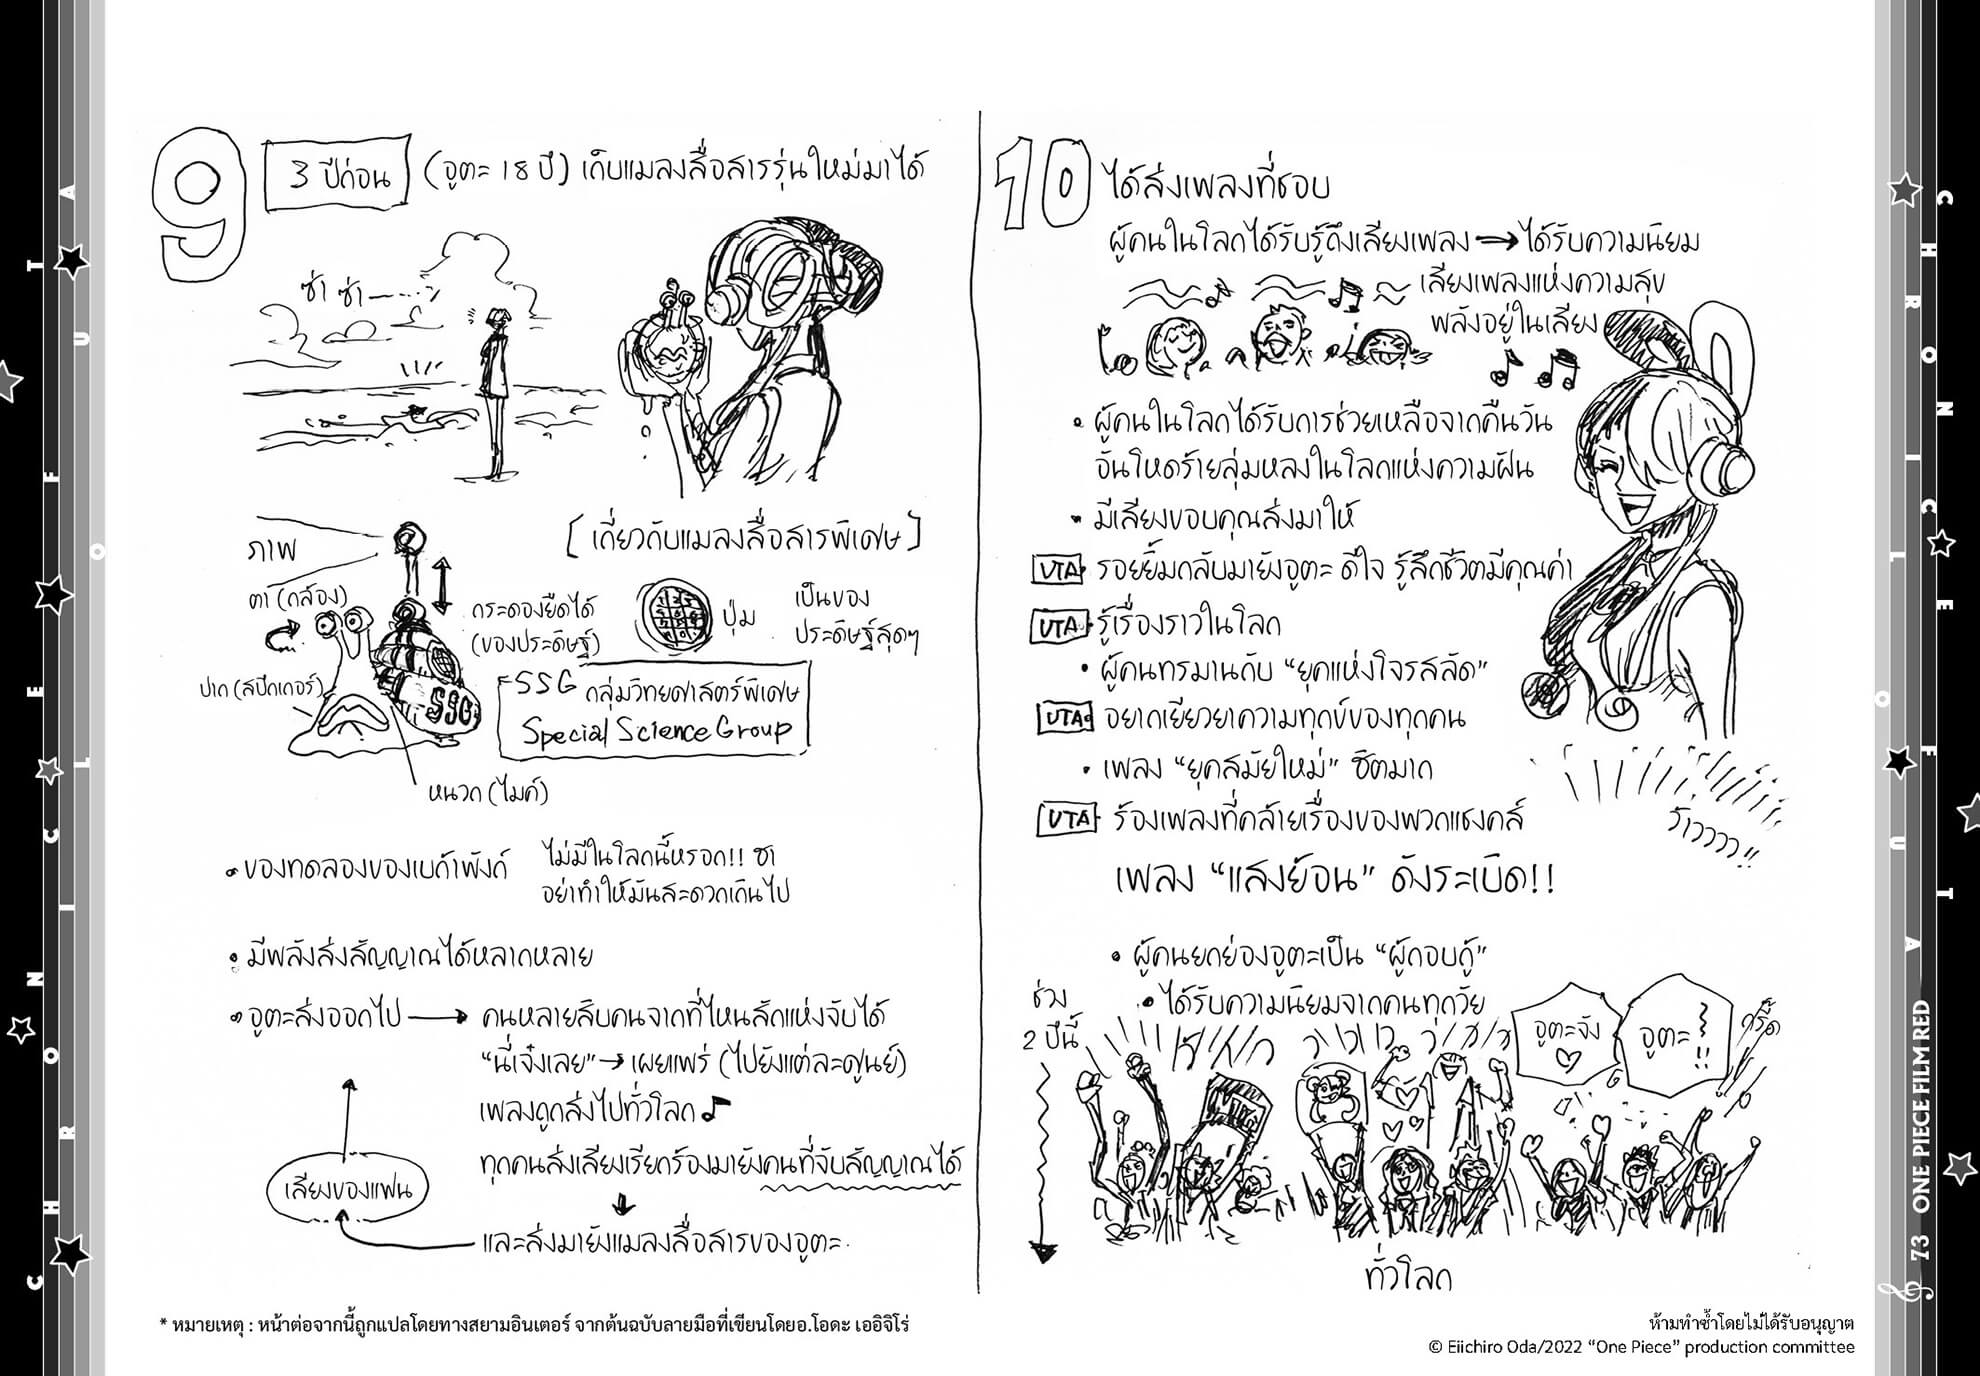 9
3 ปีก่อน (อูตะ 18 ปี) เก็บแมลงสื่อสารรุ่นใหม่มาได้
ซ่า ซ่า
[เกี่ยวกับแมลงสื่อสารพิเศษ]
ภาพ
ตา (กล้อง)
ปาก (สปีกเกอร์)
กระดองยืดได้
(ของประดิษฐ์)
ปุ่ม
เป็นของ
ประดิษฐ์สุดๆ
SSG
SSG กลุ่มวิทยศาสตร์พิเศษ
Special Science Group
หนวก (ไมค์)
• ของทดลองของเบก้าพังก์
ไม่มีในโลกนี้หรอก!! ชา
อย่าทำให้มันสะดวกเกินไป
• มีพลังส่งสัญญาณได้หลากหลาย
• อูตะส่งออกไป → คนหลายสิบคนจากที่ไหนสักแห่งจับได้
“นี่เจ๋งเลย” → เผยแพร่ (ไปยังแต่ละศูนย์)
เพลงถูกส่งไปทั่วโลก ♪
ทุกคนส่งเสียงเรียกร้องมายังคนที่จับสัญญาณได้
เสียงของแฟน
และส่งมายังแมลงสื่อสารของอูตะ
10
ได้ส่งเพลงที่ชอบ
ผู้คนในโลกได้รับรู้ถึงเสียงเพลง → ได้รับความนิยม
เสียงเพลงแห่งความสุข
พลังอยู่ในเสียง
• ผู้คนในโลกได้รับการช่วยเหลือจากคืนวัน
อันโหดร้ายลุ่มหลงในโลกแห่งความฝัน
• มีเสียงขอบคุณส่งมาให้
UTA รอยยิ้มกลับมายังอูตะ ดีใจ รู้สึกชีวิตมีคุณค่า
UTA รู้เรื่องราวในโลก
• ผู้คนทรมานกับ “ยุคแห่งโจรสลัด”
UTA อยากเยียวยาความทุกข์ของทุกคน
• เพลง “ยุคสมัยใหม่” ฮิตมาก
UTA ร้องเพลงที่คล้ายเรื่องของพวกแชงคส์
ว้าวววว!!
เพลง “แสงย้อน” ดังระเบิด!!
• ผู้คนยกย่องอูตะเป็น “ผู้กอบกู้”
• ได้รับความนิยมจากคนทุกวัย
ช่วง
2 ปีนี้
อูตะจัง
อูตะ!!
กรี๊ด
ทั่วโลก
* หมายเหตุ : หน้าต่อจากนี้ถูกแปลโดยทางสยามอินเตอร์ จากต้นฉบับลายมือที่เขียนโดยอ.โอดะ เออิจิโร่
ห้ามทำซ้ำโดยไม่ได้รับอนุญาต
© Eiichiro Oda/2022 “One Piece” production committee
CHRONICLE OF UTA
CHRONICLE OF UTA
73 ONE PIECE FILM RED